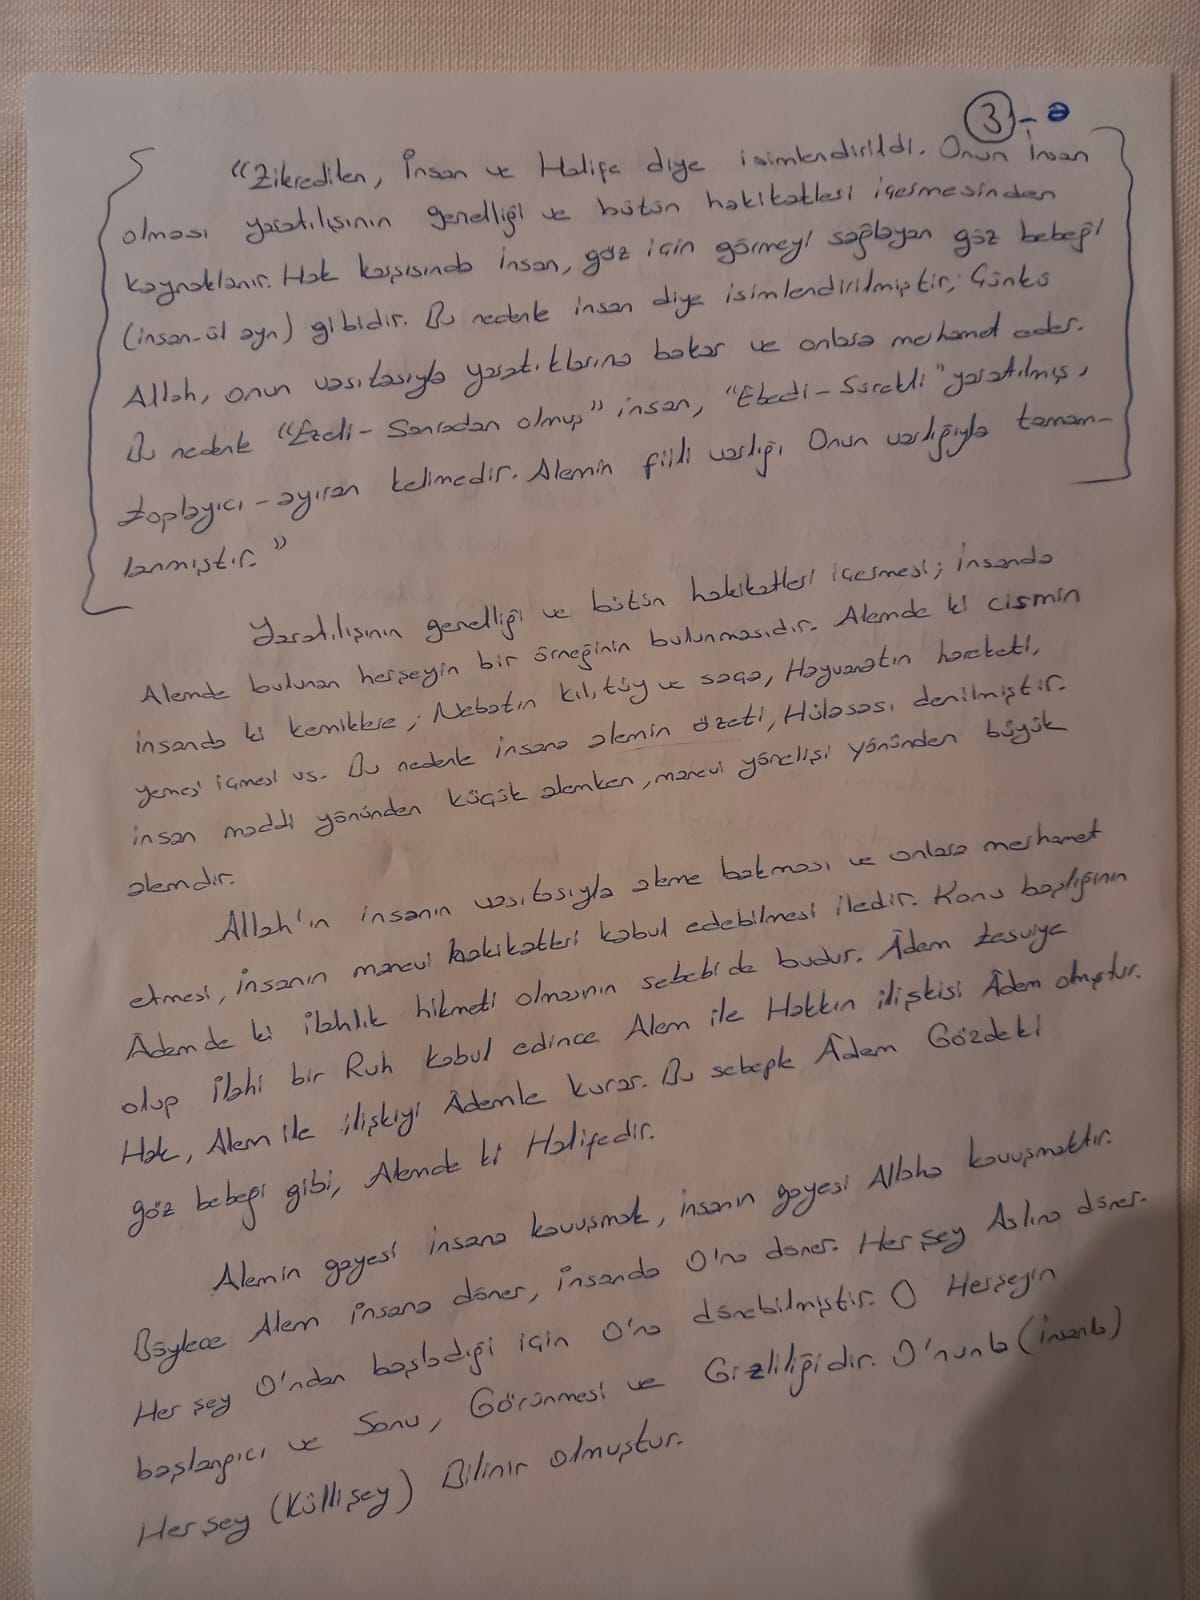 3 - a
"Zikredilen, İnsan ve Halife diye isimlendirildi. Onun insan
olması yaratılışının genelliği ve bütün hakikatleri içermesinden
kaynaklanır. Hak karşısında insan, göz için görmeyi sağlayan göz bebeği
(insan-ül ayn) gibidir. Bu nedenle insan diye isimlendirilmiştir; Çünkü
Allah, onun vasıtasıyla yaratıklarına bakar ve onlara merhamet eder.
Bu nedenle "Ezeli-Sonradan olmuş" insan, "Ebedi-Sürekli" yaratılmış,
toplayıcı-ayıran kelimedir. Alemin fiili varlığı Onun varlığıyla tamam-
lanmıştır."
Yaratılışının genelliği ve bütün hakikatleri içermesi; insanda
Alemde bulunan herşeyin bir örneğinin bulunmasıdır. Alemde ki cismin
insanda ki kemiklere, Nebatın kıl, tüy ve saça, Hayvanatın hareketi,
yemesi içmesi vs. Bu nedenle insana alemin özeti, Hülasası denilmiştir.
insan maddi yönünden küçük alemken, manevi yönelişi yönünden büyük
alemdir.
Allah'ın insanın vasıtasıyla aleme bakması ve onlara merhamet
etmesi, insanın manevi hakikatleri kabul edebilmesi iledir. Konu başlığının
Âdemde ki ilahlık hikmeti olmasının sebebi de budur. Âdem tesviye
olup İlahi bir Ruh kabul edince Alem ile Hakkın ilişkisi Âdem olmuştur.
Hak, Alem ile ilişkiyi Âdemle kurar. Bu sebeple Âdem Gözdeki
göz bebeği gibi, Alemde ki Halifedir.
Alemin gayesi insana kavuşmak, insanın gayesi Allaha kavuşmaktır.
Böylece Alem insana döner, insanda O'na döner. Her şey Aslına döner.
Her şey O'ndan başladığı için O'na dönebilmiştir. O Herşeyin
başlangıcı ve Sonu, Görünmesi ve Gizliliğidir. O'nunla (insanla)
Herşey (Küllişey) Bilinir olmuştur.